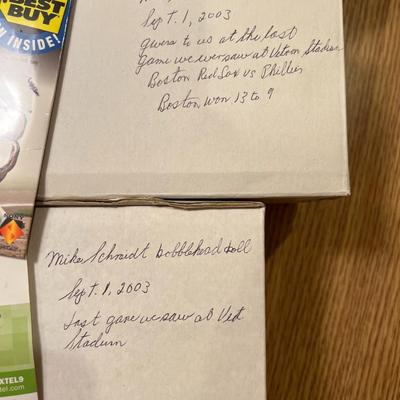 BEST
BUY
INSIDE!
Sept. 1, 2003
given to us at the last
game we ever saw at Vetran Stadium
Boston Red Sox vs Phillies
Boston won 13 to 9
Mike Schmidt bobblehead doll
Sept. 1, 2003
Last game we saw at Vet
Stadium
XTEL9
tel.com